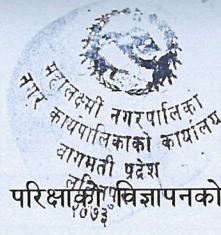 महालक्ष्मी नगरपालिका
नगर कार्यपालिकाको कार्यालय
बागमती प्रदेश
२०७३
परिक्षाको विज्ञापनको